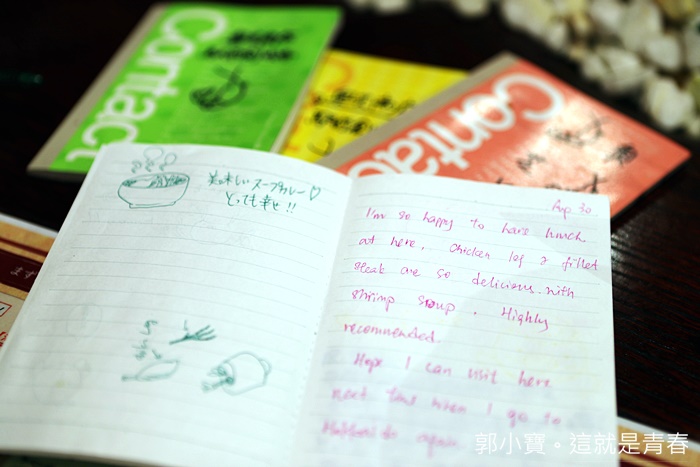 Contact
Contact
美味しいスープカレー♡
とっても幸せ!!
Sep. 30
I'm so happy to have lunch
at here. Chicken leg & fillet
steak are so delicious. with
shrimp soup. Highly
recommended.
Hope I can visit here
next time when I go to
again
郭小寶。這就是青春